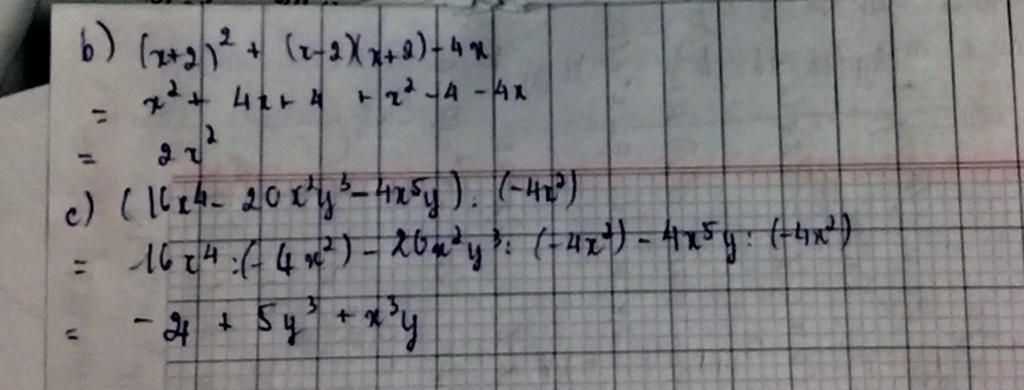 b) (x+2)² + (x-2)(x+2) - 4x
= x² + 4x + 4 + x² - 4 - 4x
= 2x²
c) (16x⁴ - 20x²y³ - 4x⁵y) : (-4x²)
= 16x⁴ : (-4x²) - 20x²y³ : (-4x²) - 4x⁵y : (-4x²)
= + 5y³ + x³y